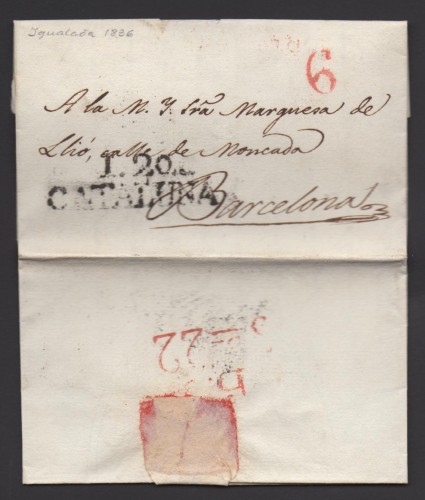 Igualada 1836
6
A la M. Y. Sra Marquesa de
Llió, calle de Moncada
Barcelona
I. 20.
CATALUÑA
22